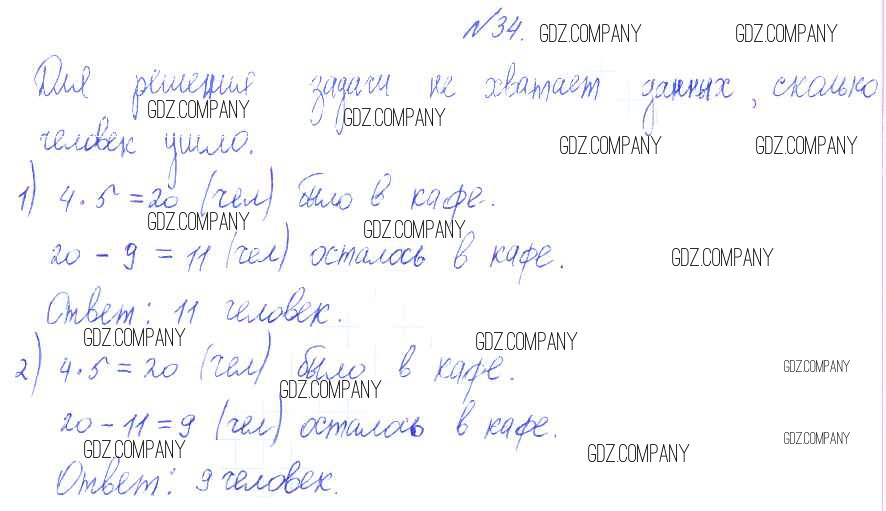 №34. GDZ.COMPANY GDZ.COMPANY
Для решения задачи не хватает данных, сколько
GDZ.COMPANY GDZ.COMPANY
человек ушло. GDZ.COMPANY GDZ.COMPANY
1) 4·5=20 (чел) было в кафе.
GDZ.COMPANY GDZ.COMPANY
20-9=11 (чел) осталось в кафе. GDZ.COMPANY
Ответ: 11 человек.
GDZ.COMPANY GDZ.COMPANY
2) 4·5=20 (чел) было в кафе. GDZ.COMPANY
GDZ.COMPANY
20-11=9 (чел) осталось в кафе. GDZ.COMPANY
GDZ.COMPANY GDZ.COMPANY
Ответ: 9 человек.